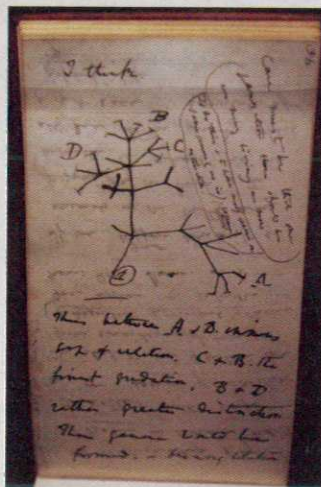 36
I think
B
D
C
A
1
Case must be that one
generation then should be
as many living as now
To do this & to have many species in
same genus (as is) requires
extinction
Thus between A & B immense
gap of relation. C & B. the
finest gradation, B & D
rather greater distinction
Thus genera would be
formed. — bearing relation